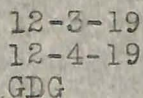 12-3-19
12-4-19
GDG